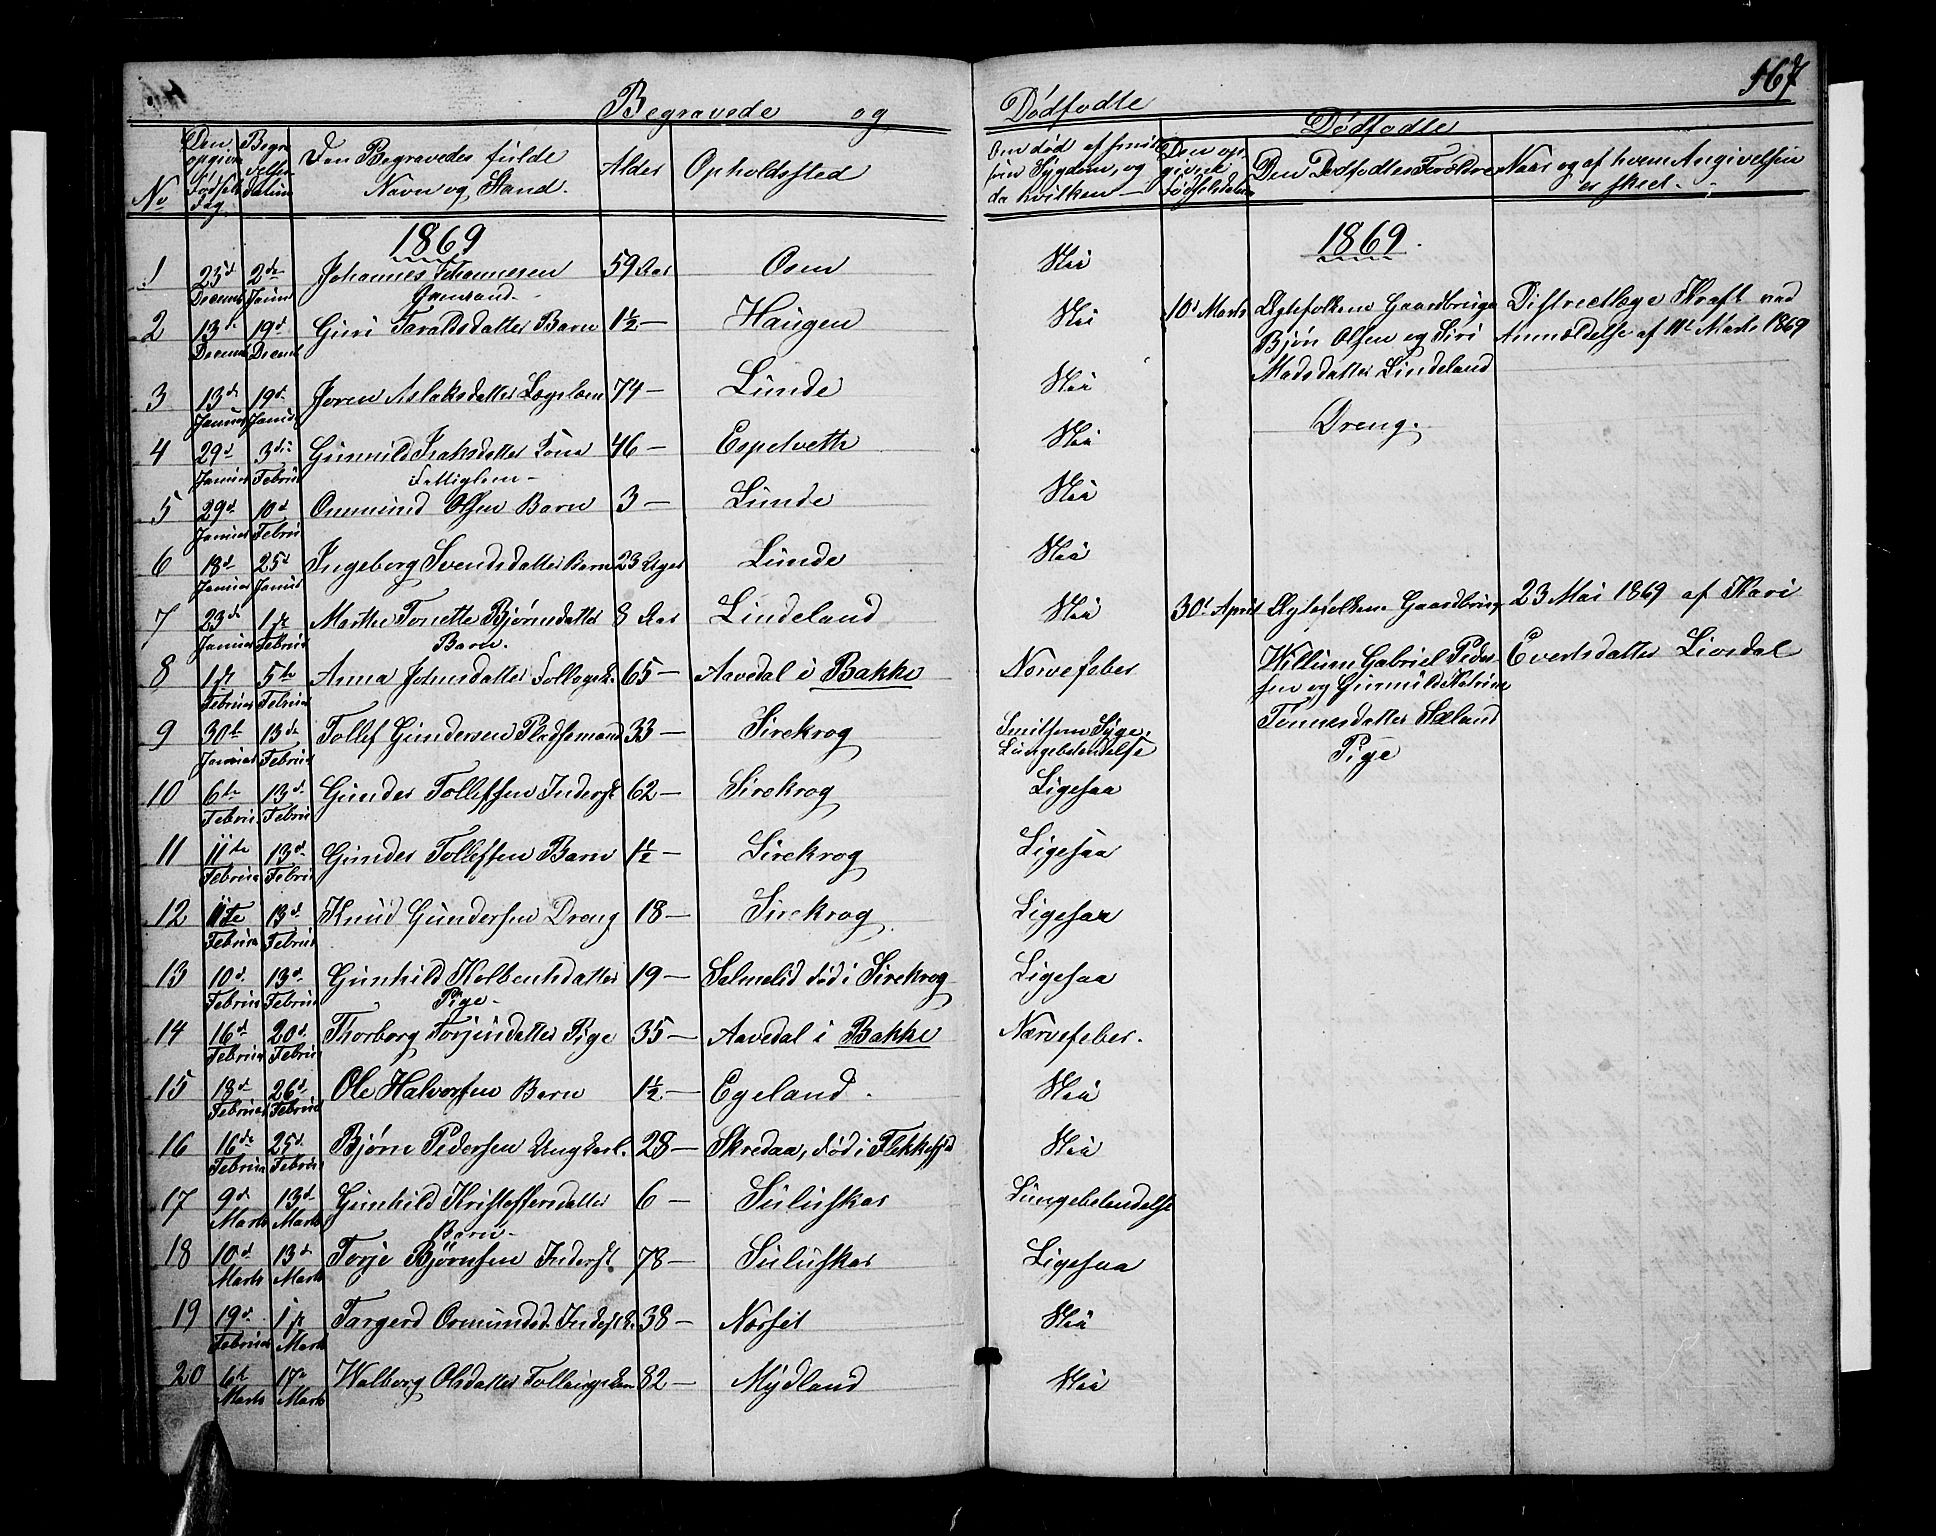 167
Begravede og Dødfødte
Dødfødte
No
Den opgivne Dødsfalds Dag
Begravelses datum
Den Begravedes fulde Navn og Stand.
Alder
Opholdssted
Om død af smitsom Sygdom, og da hvilken
Den opgivne Dødfødsels datum
Den Dødfødtes Forældre
Naar og af hvem Angivelsen er skeet.
1869
1869.
1 23d Decemb 2den Januar Johannes Johannesen 59 Aar Osen Nei
2 13de Decemb 19d Decemb Guri Taraldsdatter Barn 1½ — Haugen Nei
3 13de Januar 19d Januar Joren Aslaksdatter Lægslem 74 — Lunde Nei
4 29d Januar 3die Februar Gunnild Isaksdatter Fattiglem 46 — Espetveth Nei
5 29d Januar 10d Februar Ommund Olsen Barn 3 — Lunde Nei
6 18d Januar 25d Januar Ingeborg Svendsdatter Barn 23 Uger Lunde Nei
7 23de Januar 1ste Februar Marthe Tonette Bjørnsdatter Barn. 8 Aar Lindeland Nei
8 1ste Februar 5te Februar Anna Johnsdatter 65 — Aavedal i Bakke Nervefeber
9 30te Januar 13de Februar Tollef Gundersen Pladsmand 33 — Sirekrog Smitsom Syge, Lungebetændelse
10 6te Februar 13d. Februar Gunder Tollefsen Inderst 62 — Sirekrog Ligesaa
11 11te Februar 13d. Februar Gunder Tollefsen Barn 1½ — Sirekrog Ligesaa
12 11te Februar 13d. Februar Knud Gundersen Dreng 18 — Sirekrog Ligesaa
13 10d. Februar 13d. Februar Gunhild Kolbentsdatter Pige - 19 — Salmelid død i Sirekrog Ligesaa
14 16d Februar 20d. Februar Thorborg Torjusdatter Pige 35 — Aavedal i Bakke Nærvefeber.
15 18d Februar 26d. Februar Ole Halvorsen Barn 1½ — Egeland. Nei
16 16de Februar 25d. Februar Bjørn Pedersen Ungkarl. 28 — Skredaa, død i Flekkefjd Nei
17 9d. Marts 13d Marts Gunhild Kristoffersdatter Barn - 6 — Suluskar Lungebetændelse
18 10d Marts 13d Marts Torje Bjørnsen Inderst 78 — Suluskar Ligesaa
19 19d. Februar 1ste Marts Targerd Osmundsd. 38 — Norset Nei
20 6te Marts 17de Marts Walborg Olsdatter 82 — Mydland Nei
10d Marts Ægtefolkene Gaardbruger
Bjørn Olsen og Siri
Madsdatter Lindeland
Dreng.
Districtlæge Kraft ved
Anmældelse af 11te Marts 1869
30te April Ægtefolkene Gaardbruger
Willum Gabriel Peder-
sen og Gunnild Katrine
Tønnesdatter Sæland
Pige
23 Mai 1869 af Kari
Evertsdatter Livsdal